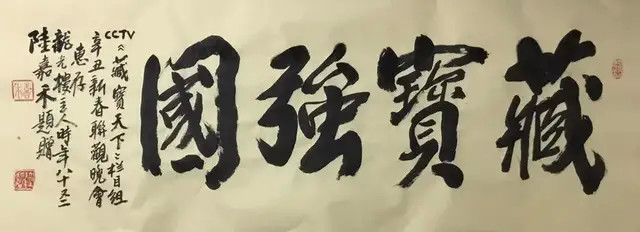 藏寶強國
CCTV《藏寶天下》栏目組
辛丑新春聯觀晚會
惠存
龍光樓主人時年八十五
陸嘉禾題贈